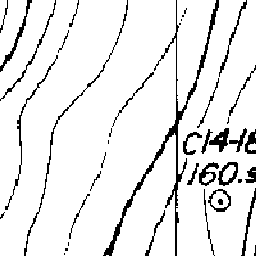 C14-18
160.5